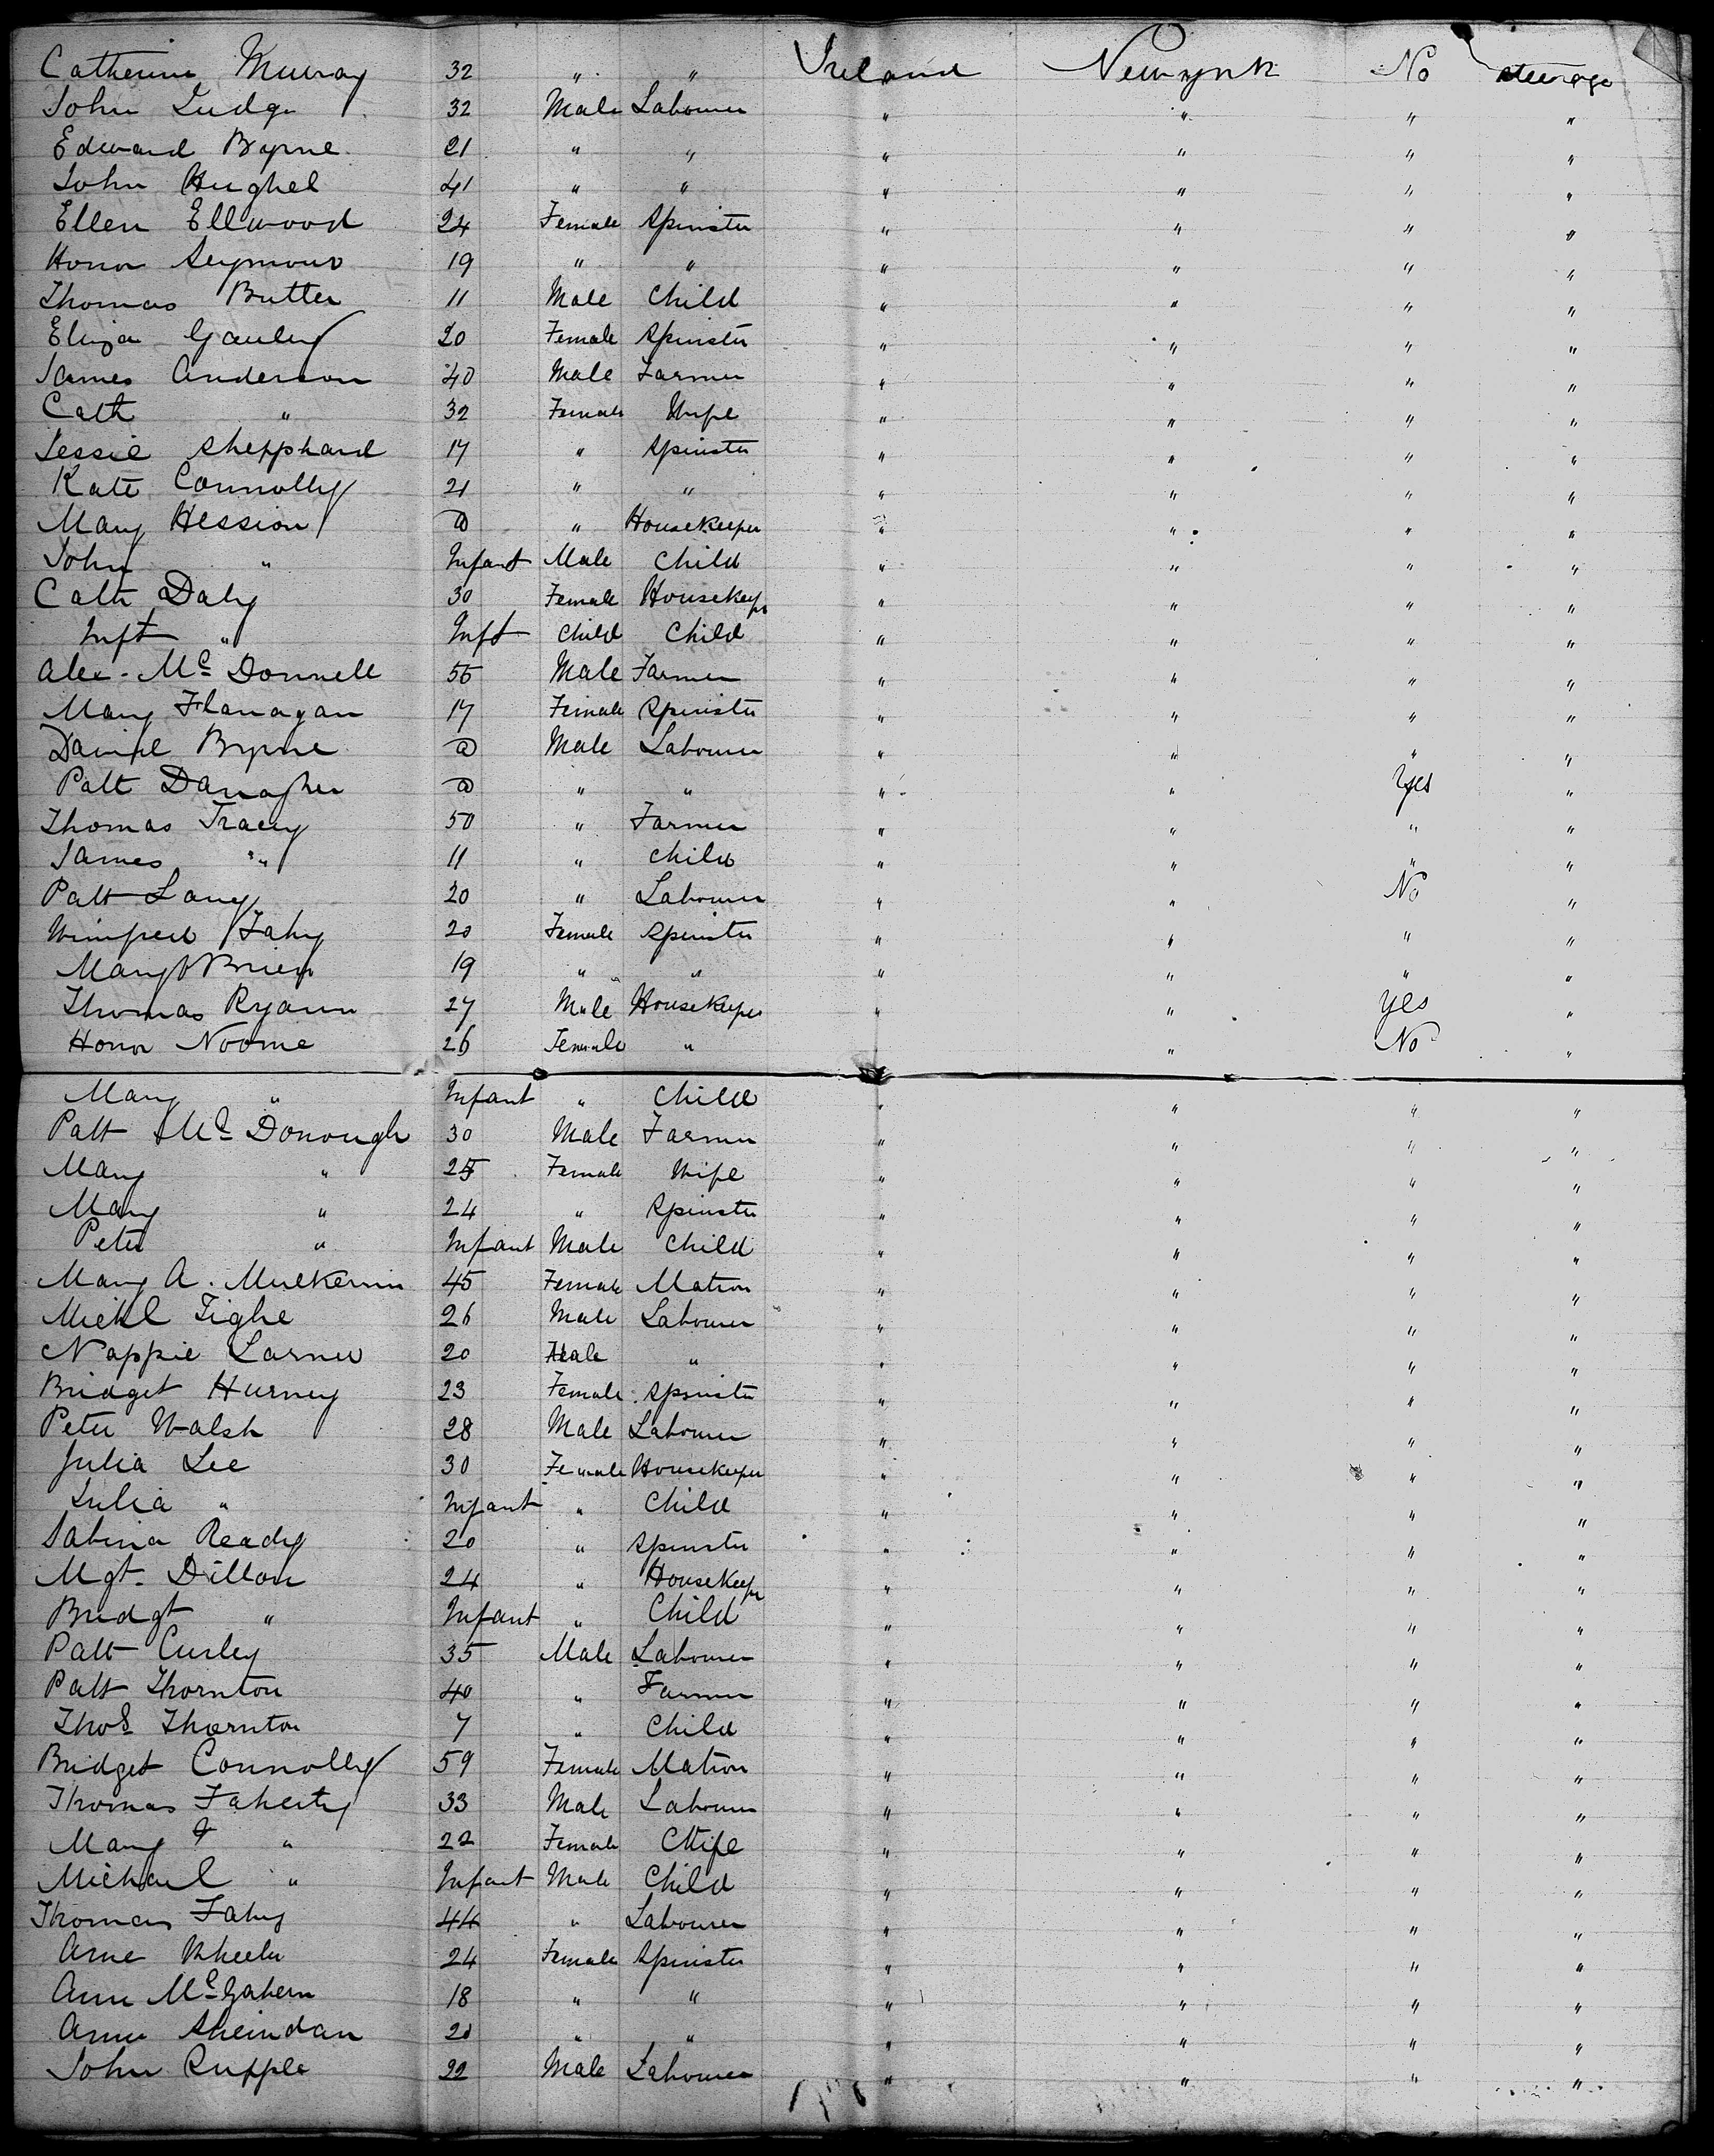 Catherine Murray 32 " " Ireland Newyork No steerage
John Judge 32 Male Labourer " " " "
Edward Byrne 21 " " " " " "
John Hughes 41 " " " " " "
Ellen Ellwood 24 Female Spinster " " " "
Honor Seymour 19 " " " " " "
Thomas Butler 11 Male Child " " " "
Eliza Gauley 20 Female Spinster " " " "
James Anderson 40 Male Farmer " " " "
Cath " 32 Female Wife " " " "
Jessie Shepphard 17 " Spinster " " " "
Kate Connolly 21 " " " " " "
Mary Hession a " Housekeeper " " " "
John " Infant Male Child " " " "
Cath Daly 30 Female Housekeepr " " " "
Inft " Inft Child Child " " " "
Alex. Mc Donnell 55 Male Farmer " " " "
Mary Flanagan 17 Female Spinster " " " "
Daniel Byrne a Male Labourer " " " "
Patt Danagher a " " " " Yes "
Thomas Tracey 50 " Farmer " " " "
James " 11 " Child " " " "
Patt Lang 20 " Labourer " " No "
Winifred Fahy 20 Female Spinster " " " "
Mary O Brien 19 " " " " " "
Thomas Ryann 27 Male Housekeeper " " yes "
Honor Noone 26 Female " " " No "
Mary " Infant " Child " " " "
Patt Mc Donough 30 Male Farmer " " " "
Mary " 25 Female Wife " " " "
Mary " 24 " Spinster " " " "
Peter " Infant Male Child " " " "
Mary A. Mulkerrin 45 Female Matron " " " "
Michl Tighe 26 Male Labourer " " " "
Nappie Larner 20 Male " " " " "
Bridget Hurney 23 Female Spinster " " " "
Peter Walsh 28 Male Labourer " " " "
Julia Lee 30 Female Housekeeper " " " "
Julia " Infant " Child " " " "
Sabina Ready 20 " Spinster " " " "
Mgt. Dillon 24 " Housekeepr " " " "
Bridgt " Infant " Child " " " "
Patt Curley 35 Male Labourer " " " "
Patt Thornton 40 " Farmer " " " "
Thos Thornton 7 " Child " " " "
Bridget Connolly 59 Female Matron " " " "
Thomas Faherty 33 Male Labourer " " " "
Mary " 22 Female Wife " " " "
Michael " Infant Male Child " " " "
Thomas Fahy 44 " Labourer " " " "
Anne Wheeler 24 Female Spinster " " " "
Ann Mc Gahern 18 " " " " " "
Anne Sheindan 20 " " " " " "
John Rupple 22 Male Labourer " " " "